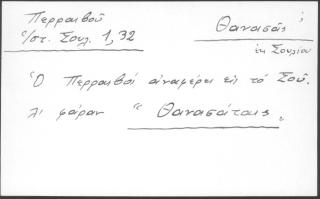 Περραιβοῦ
Ἱστ. Σουλ. 1,32
Θανασᾶς
ἐκ Σουλίου
Ὁ Περραιβός ἀναφέρει εἰς τό Σοῦ-
λι φάραν "Θανασάταις„